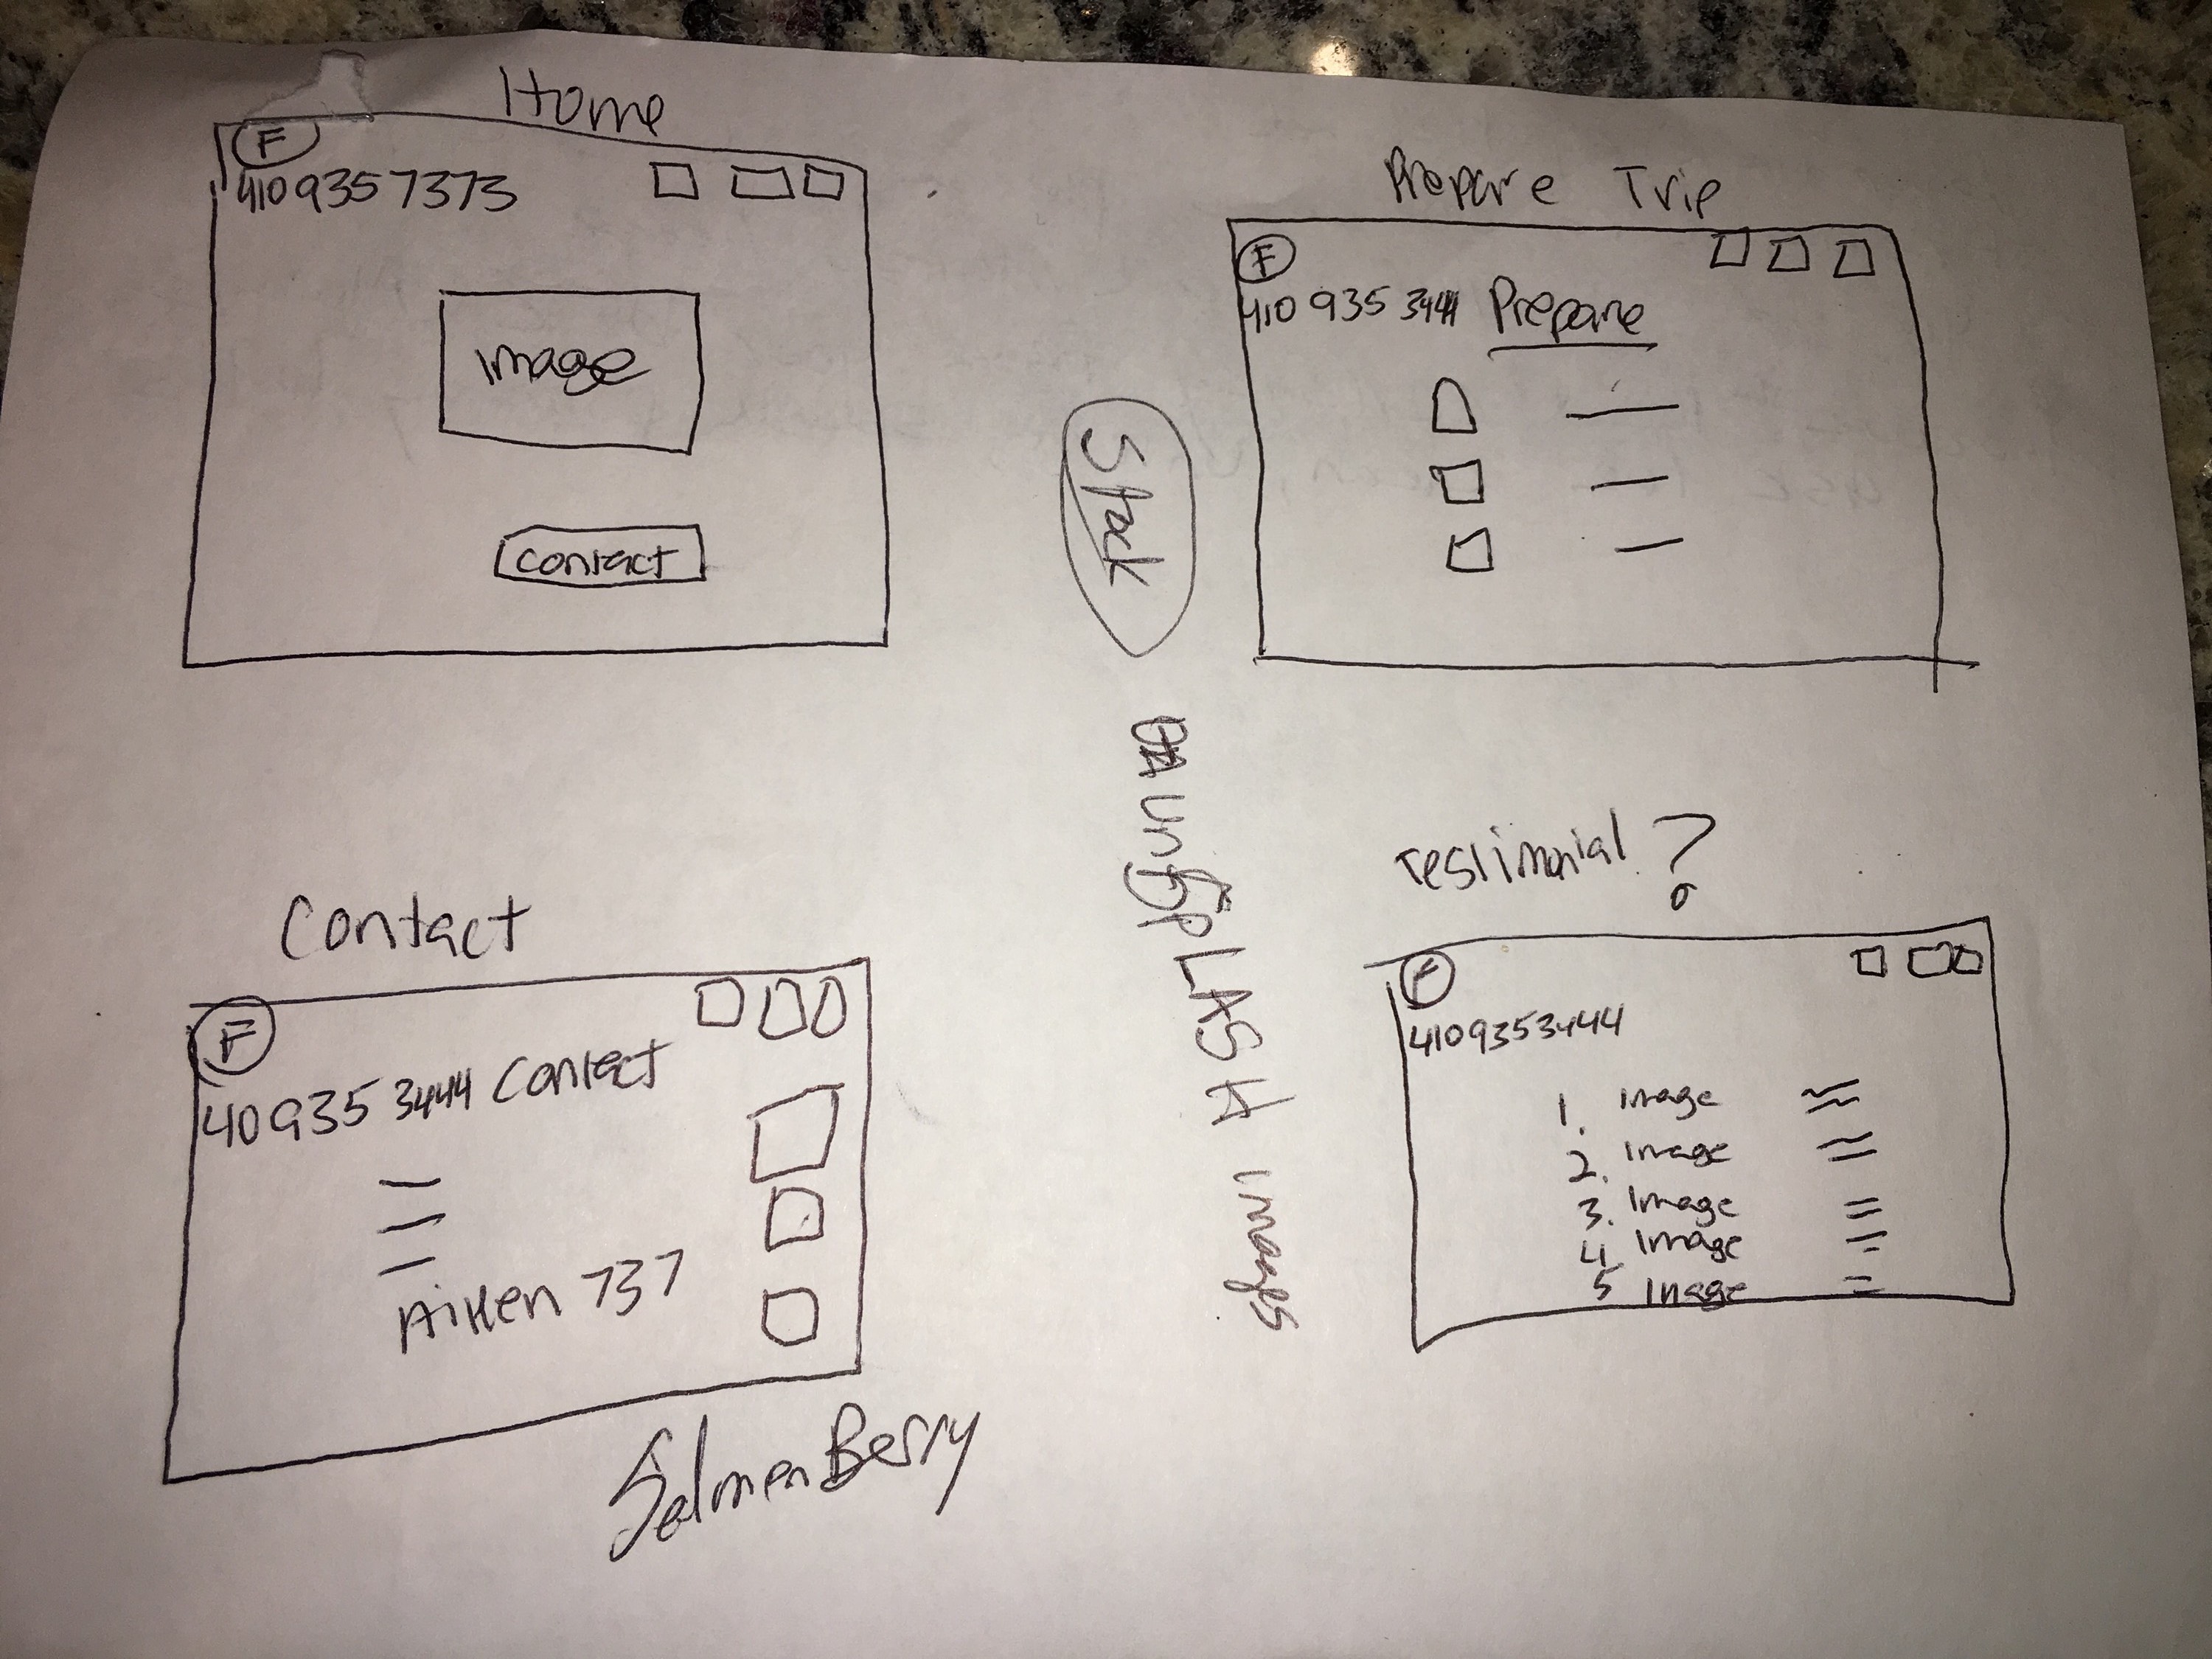 Home
F
410 935 7373
image
contact
Prepare Trip
F
410 935 3444 Prepare
Stack
UnSPLASH images
Contact
F
410 935 3444 Contact
Aitken 737
SalmenBerry
Testimonial ?
F
4109353444
1. Image
2. Image
3. Image
4 Image
5 Image